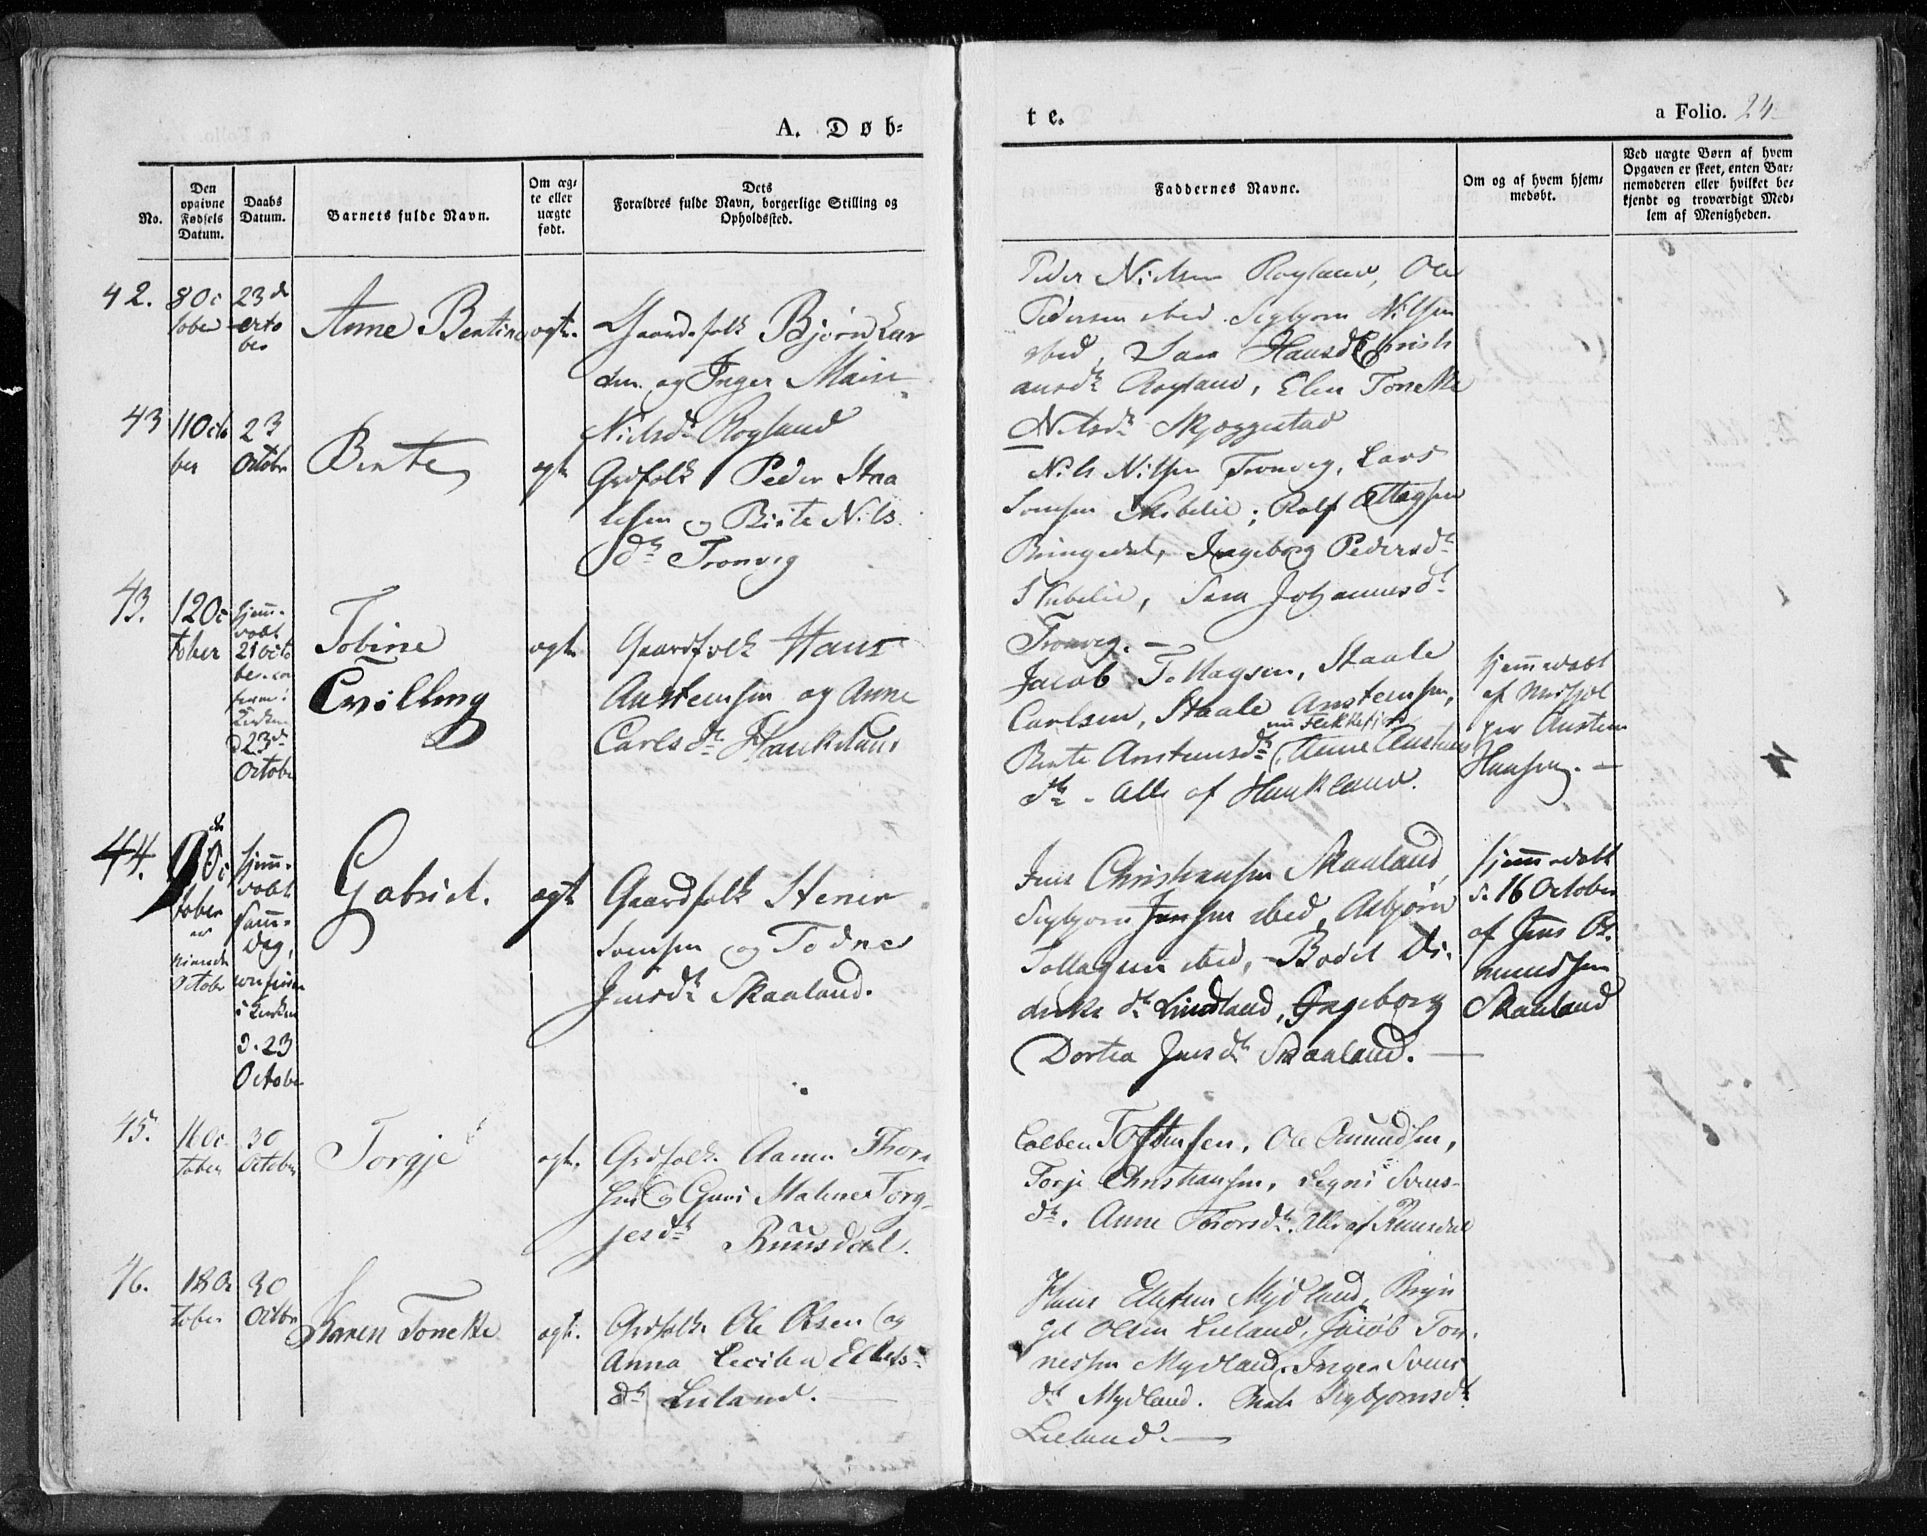 A. Døb-
te.
a Folio. 24
No.
Den opgivne Fødsels Datum.
Daabs Datum.
Barnets fulde Navn.
Om ægte eller uægte født.
Dets Forældres fulde Navn, borgerlige Stilling og Opholdssted.
Faddernes Navne.
Om og af hvem hjemmedøbt.
Ved uægte Børn af hvem Opgaven er skeet, enten Barnemoderen eller hvilket bekjendt og troværdigt Medlem af Menigheden.
42.
8 Oc
tober
23de
octo
ber
Anne Bentine
ægte.
Gaardsfolk Bjørn Lar
og Inger Malene
Nielsdtr Røyland
Peder Nielsen Røyland, Ole
Pedersen ibed. Sigbjørn Nilsen
ibed, Hansdtr Christi
ansdtr Røyland, Elen Tonette
Nilsdtr Skjeggestad
43
11 Octo
ber
23
Octobr
Bente
ægte
Grdfolk Peder Staa
lesen og Birte Nils
dtr Tronvig
Nils Nilsen Tronvig, Lars
Svensen Skibelie; Rolf Ollagsen
Ringedal, Ingeborg Pedersdtr
Skibelie, Sara Johannesdtr
Tronvig. —
43.
12 Oc
tober
hjem-
døbt
21 Octo
ber
Kirken
d 23de
October
Tobine
Tvilling
ægte
Gaardfolk Hans
Anstensen og Anne
Carlsdtr Haukland
Jacob Tollagsen, Staale
Carlsen, Staale Anstensen,
Bente Anstensdtr, Anne Anstens
dtr - alle af Haukland.
hjemmedøbt
af
per Austen
Hansen. —
44.
9de Oc
tober
er
niende
Octobr
hjem-
døbt
samme
Dag,
i Kirken
d. 23
October
Gabriel.
ægte
Gaardfolk Stener
Svensen og Todne
Jensdtr Skaaland.
Jens Christiansen Skaaland,
Sigbjørn Jensen ibed, Asbjørn
Tollagsen ibed, - Bodil Di-
driks dtr Lindland, Ingeborg
Dortea Jensdtr Skaaland. —
Hjemmedøbt
d. 16 October
af Jens As-
mundsen
Skaaland
45.
11 Oc
tober
30
October
Torgje
ægte.
Grdfolk Aamu Thors
sen og Guri Malene Torg-
jesdtr Ruusdal.
Colben Tostensen, Ole Omundsen,
Torje Christiansen, Signi Svens-
dtr. Anne Thorsdtr. Alle af Ruusdal
46.
18 Oc
tober
30
Octbr
Karen Tonette
ægte.
Grdfolk Ole Olsen og
Anna Cecilia Ellefs-
dtr Lieland. —
Hans Ellefsen Mydland, Bryn
gel Olsen Lieland, Jacob Tøn-
nesen Mydland. Inger Svens
dtr Mydland. Berte Sigbjørnsdtr
Lieland. —